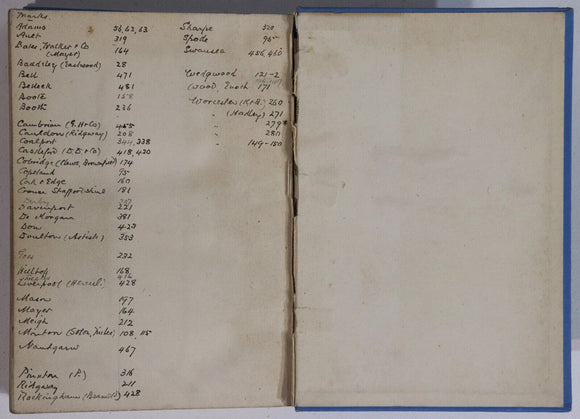 Marks.
Adams 56, 62, 63
Ault 319
Bates, Walker & Co
(Mayer) 164
Baddeley (Eastwood) 28
Bell 471
Belleek 481
Boote 158
Booth 236
Cambrian ( & Co) 455
Cauldon (Ridgway) 208
Coalport 344, 338
Castleford (D.D. & Co) 418, 420
Cobridge (Clews, Brownfield) 174
Copeland 95
Cork & Edge 160
Crown Staffordshire 181
Derby
Davenport 221
De Morgan 381
Don 423
Doulton (Artists) 353
Goss 232
Hilltop 168
Liverpool (Herculi.) 428
Mason 197
Mayer 164
Meigh 212
Minton (Solon, Tinker) 108, 115
Nantgarw 467
Pinxton (P.) 316
Ridgway 211
Rockingham (Brameld) 428
Sharpe
Spode 95
Swansea 456, 460
Wedgwood 121-2
Wood, Enoch 171
Worcester (K & B) 260
" (Hadley) 271
" 279
" 280
" 149-150